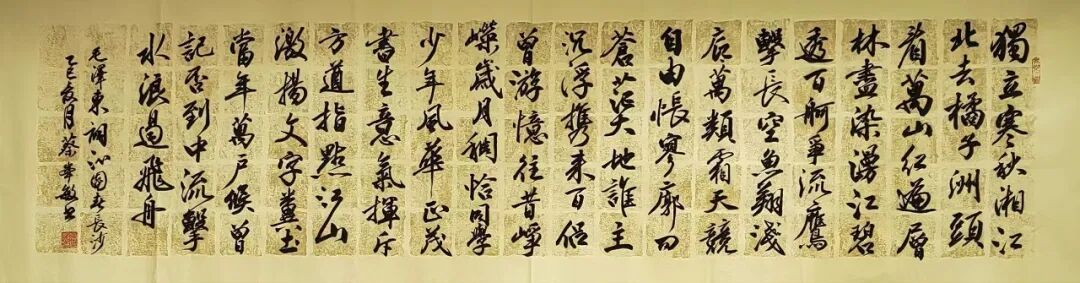 獨立寒秋湘江
北去橘子洲頭
看萬山紅遍層
林盡染漫江碧
透百舸爭流鷹
擊長空魚翔淺
底萬類霜天競
自由悵寥廓問
蒼茫大地誰主
沉浮携來百侶
曾游憶往昔崢
嶸歲月稠恰同學
少年風華正茂
書生意氣揮斥
方遒指點江山
激揚文字糞土
當年萬戶侯曾
記否到中流擊
水浪遏飛舟
毛澤東詞沁園春長沙
乙巳夏月蔡華敏書